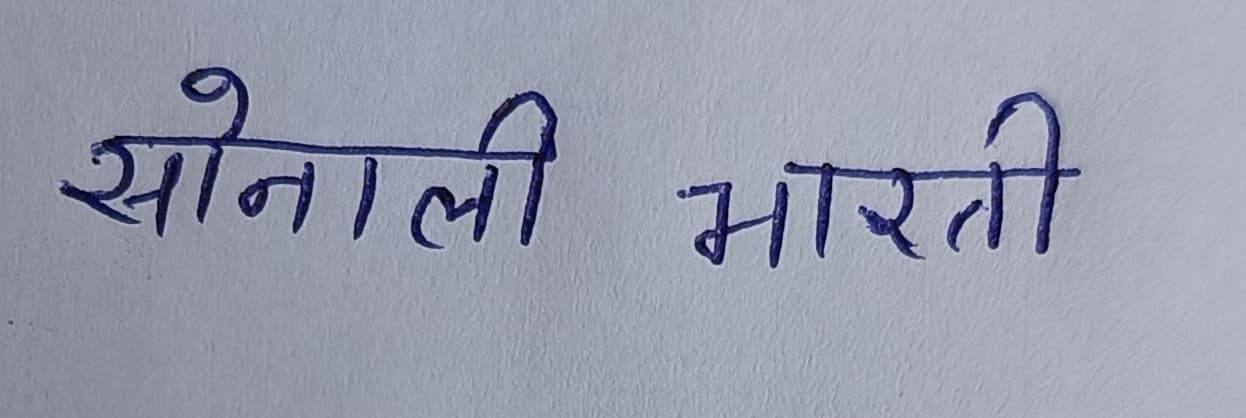 सोनाली भारती